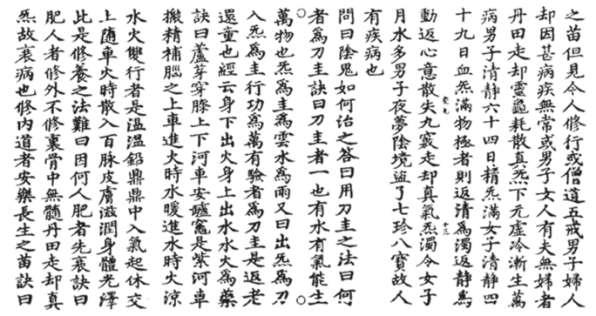 之苗但見今人修行或僧道五戒男子婦人
却因甚病疾無常或男子女人有夫無婦者
丹田走却靈龜耗散真炁下元虛冷漸生萬
病男子清靜六十四日精炁滿女子清靜四
十九日血炁滿物極者則返清為濁返靜為
動返心意散失九竅走却真氣炁濁令女子
月水多男子夜夢陰境盜了七珍八寶故人
有疾病也
問曰陰鬼如何治之答曰用刀圭之法曰何
者為刀圭訣曰刀圭者一也有水有氣能生
萬物也炁為圭為雲水為雨又曰出炁為刀
入炁為圭行功為萬有驗者為刀圭是返老
還童也經云身下出火身上出水水火為藥
訣曰蘆芽穿膝上下河車安爐竈是紫河車
搬精補腦之上車進火時水暖進水時火涼
水火雙行者是溫溫鉛鼎鼎中入氣起休交
上隨車火時散入百脉皮膚滋潤身體光澤
此是修養之法難曰因何人肥者先衰訣曰
肥人者修外不修裏骨中無髓丹田走却真
炁故衰病也修內道者安樂長生之苗訣曰